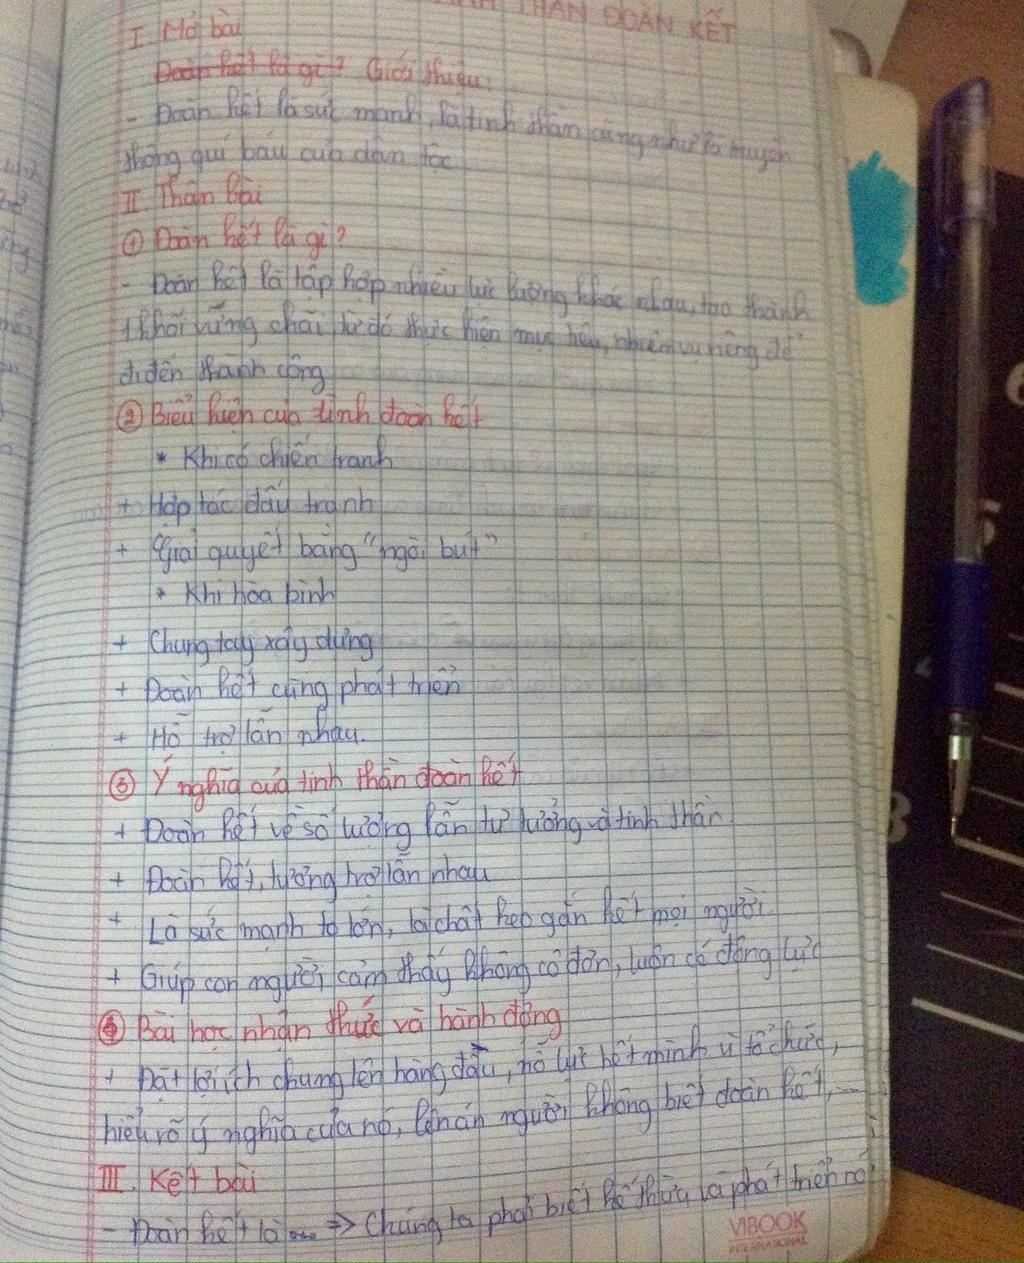 THẦN ĐOÀN KẾT
I Mở bài
Đoàn kết là gì? Giới thiệu:
- Đoàn kết là sức mạnh, là tinh thần cũng như là truyền
thống quí báu của dân tộc
II Thân bài
① Đoàn kết là gì?
- Đoàn kết là tập hợp nhiều lực lượng khác nhau, tạo thành
1 khối vững chãi từ đó thực hiện mục tiêu, nhiệm vụ riêng để
đi đến thành công
② Biểu hiện của tinh đoàn kết
* Khi có chiến tranh
+ Hợp tác đấu tranh
+ Giải quyết bằng "ngòi bút"
* Khi hòa bình
+ Chung tay xây dựng
+ Đoàn kết cùng phát triển
+ Hỗ trợ lẫn nhau.
③ Ý nghĩa của tinh thần đoàn kết
+ Đoàn kết về số lượng lẫn tư tưởng và tinh thần.
+ Đoàn kết, tương trợ lẫn nhau
+ Là sức mạnh to lớn, là chất keo gắn kết mọi người.
+ Giúp con người cảm thấy không cô đơn, luôn có động lực
④ Bài học nhận thức và hành động
+ Đặt lợi ích chung lên hàng đầu, nỗ lực hết mình vì tổ chức,
hiểu rõ ý nghĩa của nó, lên án người không biết đoàn kết, ...
III. Kết bài
- Đoàn kết là ... => Chúng ta phải biết kế thừa và phát triển nó
VIBOOK
INTERNATIONAL